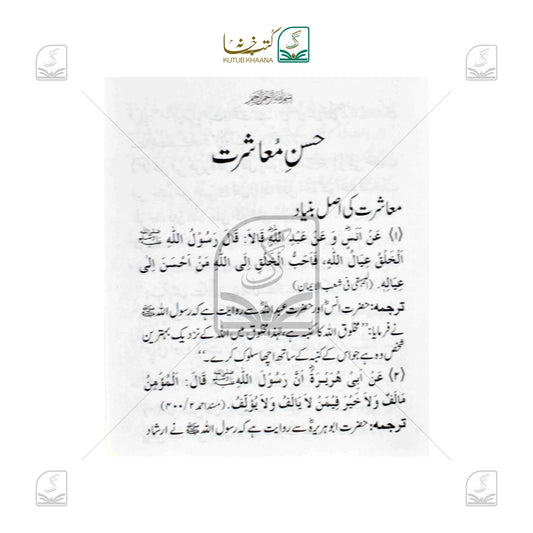 کتب خانہ
KUTUB KHAANA
بسم اللہ الرحمن الرحیم
حسنِ مُعاشرت
معاشرت کی اصل بنیاد
(۱) عَنْ اَنَسٍؓ وَ عَنْ عَبْدِ اللّٰہِؓ قَالَا: قَالَ رَسُوْلُ اللّٰہِ ﷺ
اَلْخَلْقُ عِیَالُ اللّٰہِ، فَاَحَبُّ الْخَلْقِ اِلَی اللّٰہِ مَنْ اَحْسَنَ اِلٰی
عِیَالِہٖ. (البیہقی فی شعب الایمان)
ترجمہ: حضرت انسؓ اور حضرت عبداللہؓ سے روایت ہے کہ رسول اللہ ﷺ
نے فرمایا: ’’مخلوق اللہ کا کنبہ ہے، لہٰذا مخلوق میں اللہ کے نزدیک بہترین
شخص وہ ہے جو اس کے کنبہ کے ساتھ اچھا سلوک کرے۔‘‘
(۲) عَنْ اَبِیْ ھُرَیْرَۃَؓ اَنَّ رَسُوْلَ اللّٰہِ ﷺ قَالَ: اَلْمُؤْمِنُ
مَاْلَفٌ وَلَا خَیْرَ فِیْمَنْ لَا یَاْلَفُ وَلَا یُؤْلَفُ. (مسند احمد ۲/۴۰۰)
ترجمہ: حضرت ابو ہریرہؓ سے روایت ہے کہ رسول اللہ ﷺ نے ارشاد